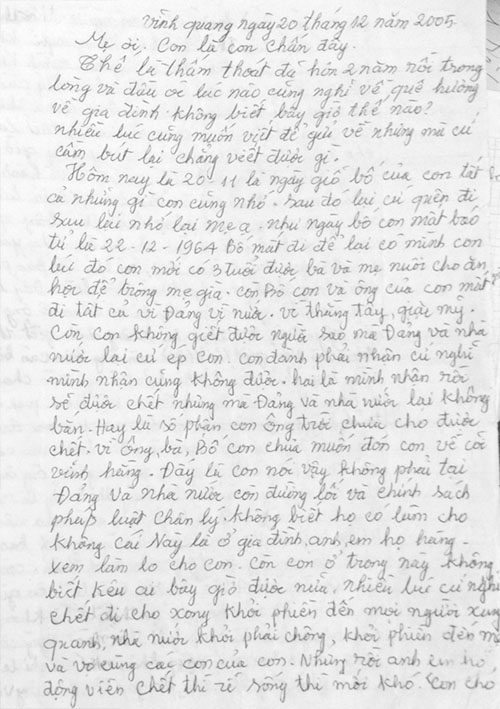 Vĩnh quang ngày 20 tháng 12 năm 2005
Mẹ ơi. Con là con Chấn đây.
Thế là thấm thoát đã hơn 2 năm rồi trong
lòng và đầu óc lúc nào cũng nghĩ về quê hương
về gia đình không biết bây giờ thế nào?
nhiều lúc cũng muốn viết để gửi về nhưng mà cứ
cầm bút lại chẳng viết được gì.
Hôm nay là 20-11 là ngày giỗ bố của con tất
cả những gì con cũng nhớ. sau đó lại cứ quên đi
sau lại nhớ lại mẹ ạ. như ngày bố con mất báo
tử là 22-12-1964 Bố mất đi để lại có mình con
lúc đó con mới có 3 tuổi được bà và mẹ nuôi cho ăn
học để trông mẹ già. còn Bố con và ông của con mất
đi tất cả vì Đảng vì nước. vì thằng tây, giặc mỹ.
Còn con không giết được người sao mà Đảng và nhà
nước lại cứ ép con. con đành phải nhận cứ nghĩ
mình nhận cũng không được. hai là mình nhận rồi
sẽ được chết nhưng mà Đảng và nhà nước lại không
bắn. Hay là số phận con ông trời chưa cho được
chết. vì ông, bà, Bố con chưa muốn đón con về cõi
vĩnh hằng. Đấy là con nói vậy không phải tại
Đảng và nhà nước còn đường lối và chính sách
pháp luật chân lý không biết họ có làm cho
không cái này là ở gia đình, anh, em họ hàng.
xem làm lo cho con. Còn con ở trong này không
biết kêu ai bây giờ được nữa. nhiều lúc cứ nghĩ
chết đi cho xong khỏi phiền đến mọi người xung
quanh, nhà nước khỏi phải chông, khỏi phiền đến mẹ
và vợ cùng các con của con. Nhưng rồi anh em họ
động viên chết thì rễ sống thì mới khó. Con cho